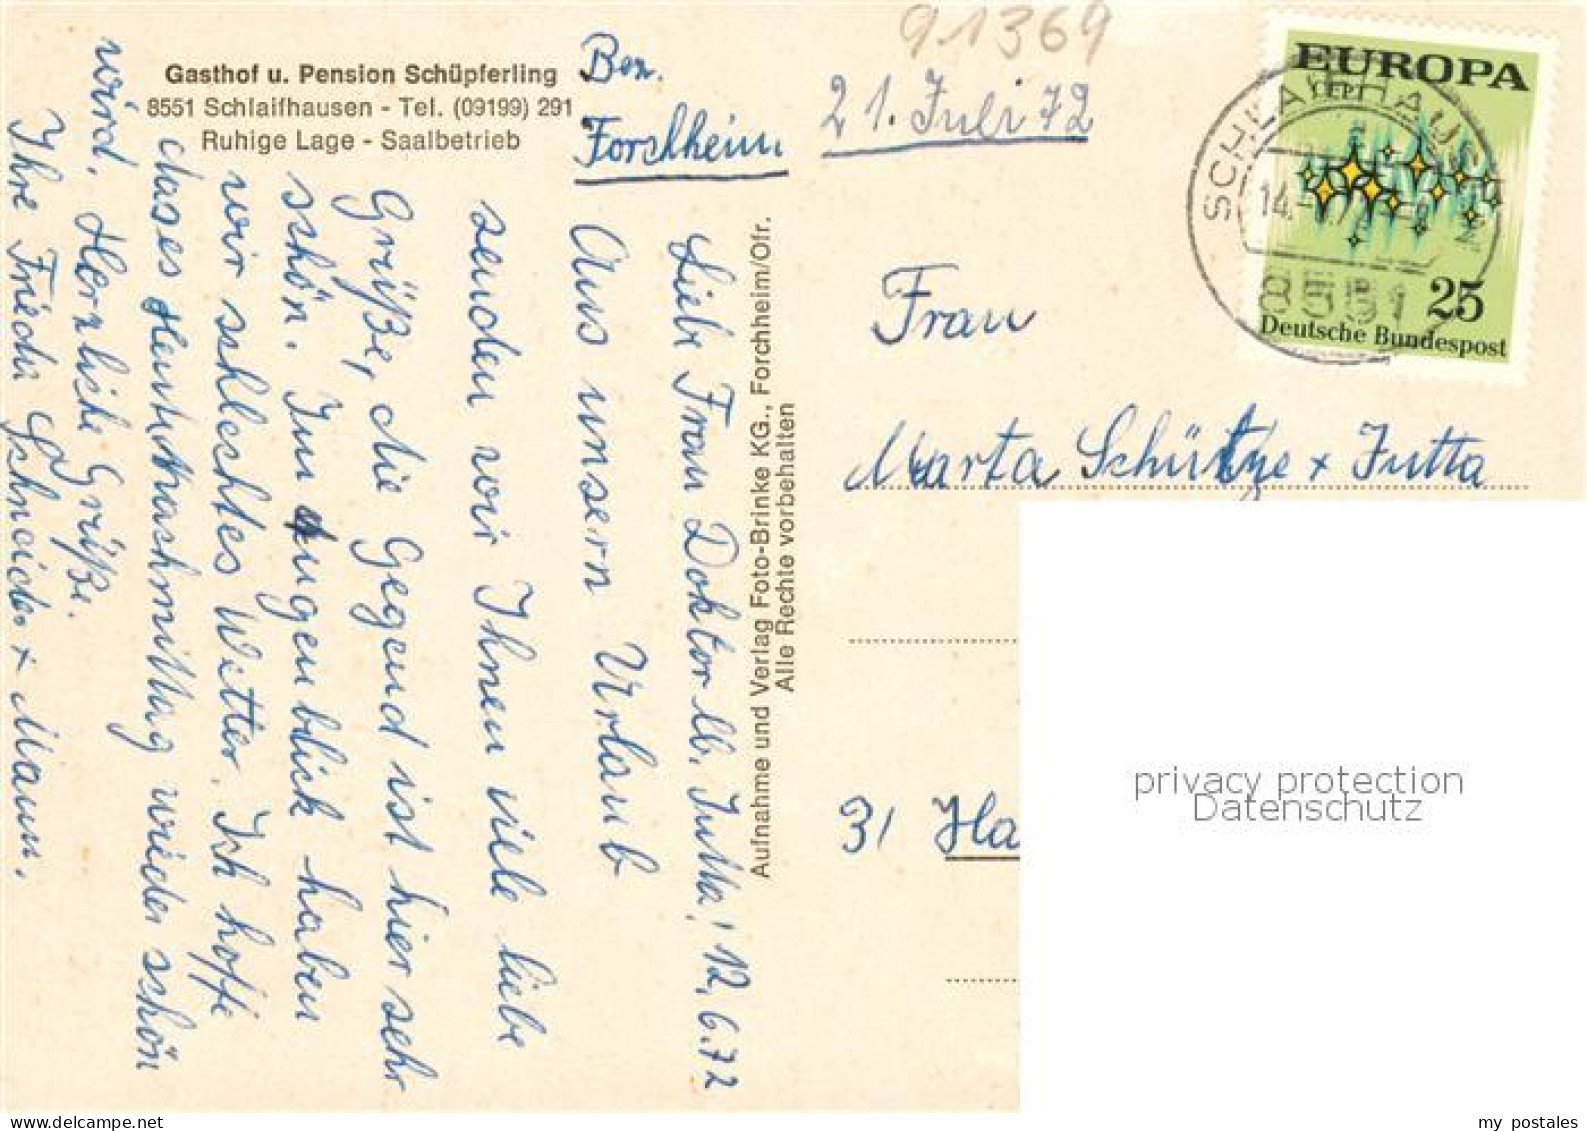 91369
Gasthof u. Pension Schüpferling
8551 Schlaifhausen - Tel. (09199) 291
Ruhige Lage - Saalbetrieb
Bez.
Forchheim
21. Juli 72
Liebe Frau Doktor lb. Jutta! 12.6.72
Aus unsern Urlaub
senden wir Ihnen viele liebe
Grüße, die Gegend ist hier sehr
schön. Im Augenblick haben
wir schlechtes Wetter. Ich hoffe
dases Heut Nachmittag wieder schön
wird. Herzliche Grüße.
Ihre Frieda Schneider + Mann.
Aufnahme und Verlag Foto-Brinke KG., Forchheim/Ofr.
Alle Rechte vorbehalten
EUROPA
CEPT
25
Deutsche Bundespost
SCHLAIFHAUSEN
14.
8551
Frau
Marta Schütze + Jutta
31 Ha
privacy protection
Datenschutz
my postales